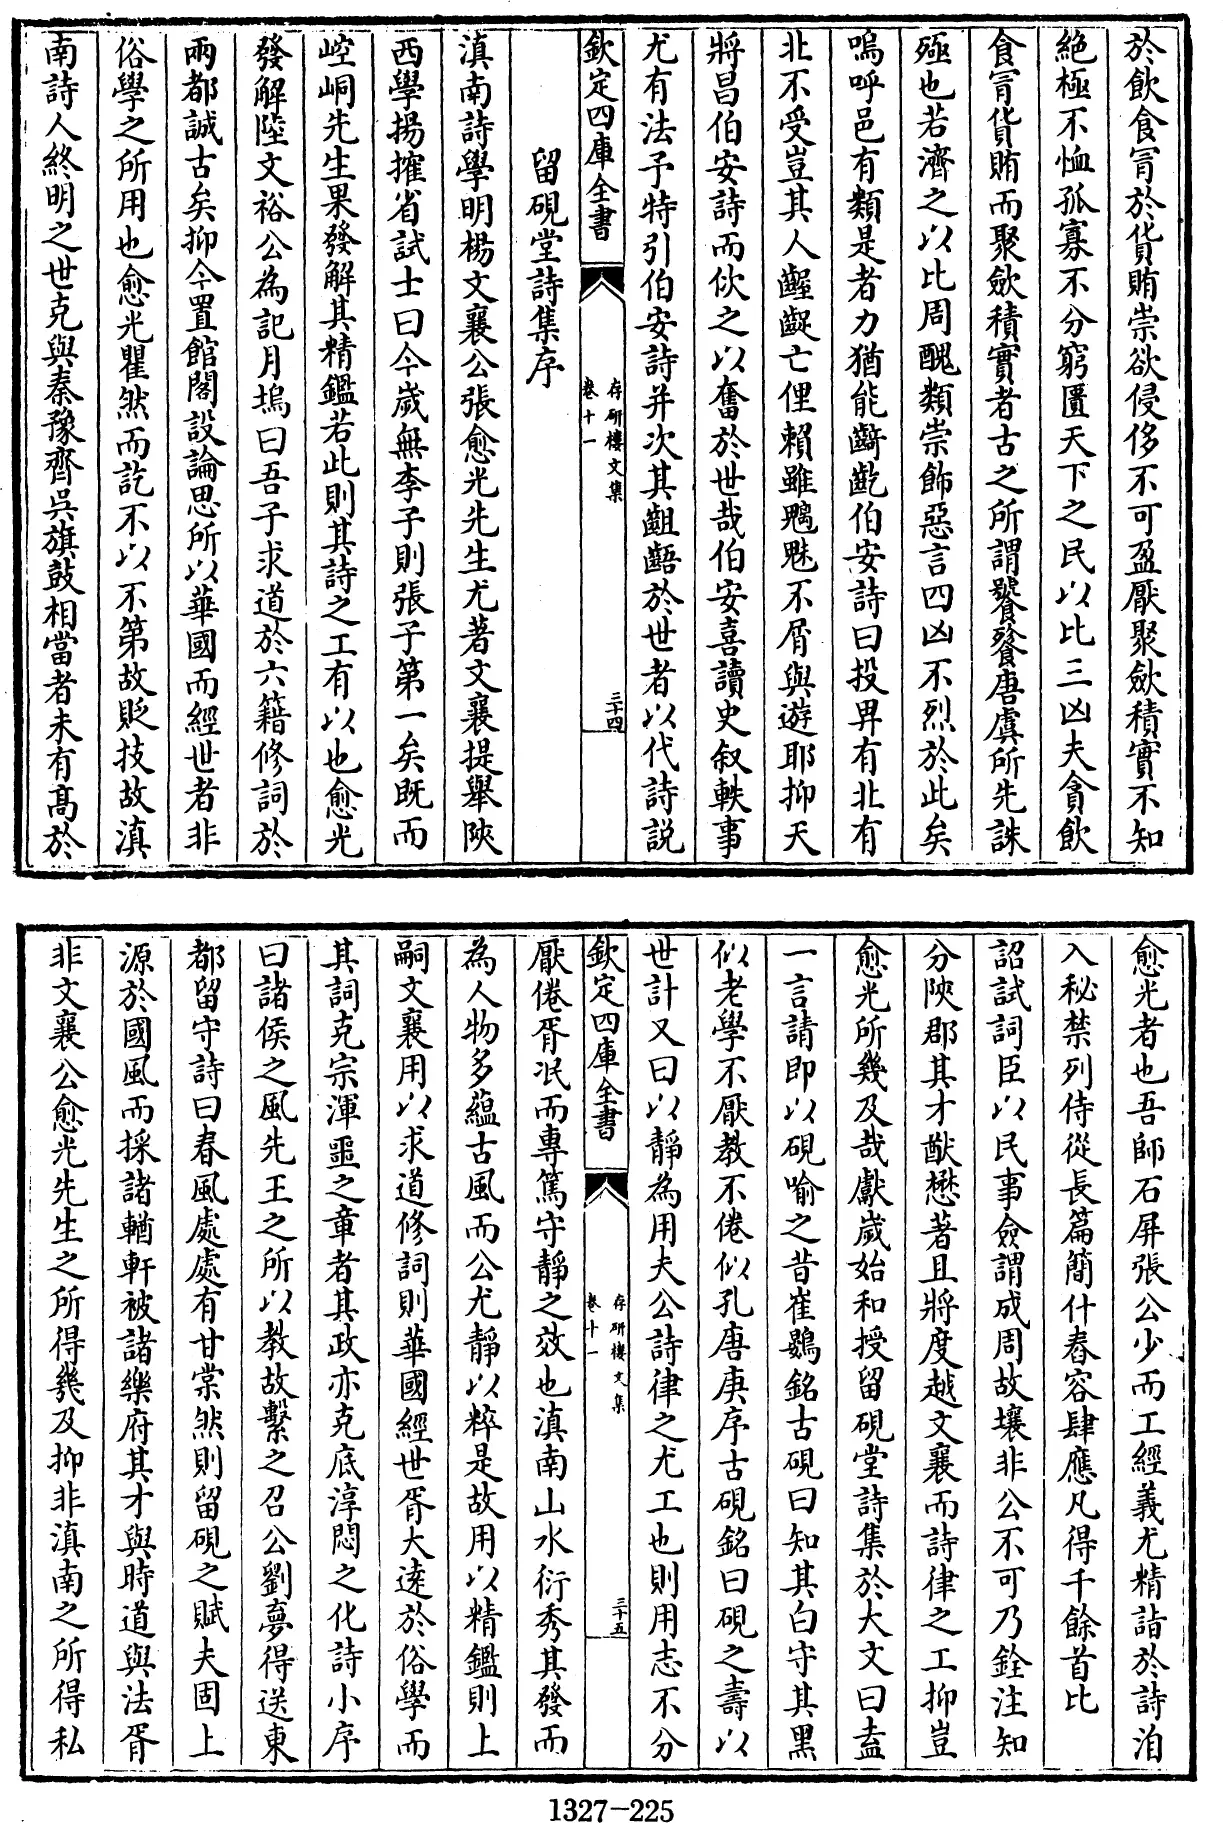 於飲食冐於貨賄崇欲侵侈不可盈厭聚歛積實不知
絶極不恤孤寡不分窮匱天下之民以比三凶夫貪飲
食冐貨賄而聚歛積實者古之所謂饕餮唐虞所先誅
殛也若濟之以比周醜類崇飾惡言四凶不烈於此矣
嗚呼邑有類是者力猶能齮齕伯安詩曰投畀有北有
北不受豈其人齷齪亡俚賴雖魑魅不屑與遊耶抑天
將昌伯安詩而佽之以奮於世哉伯安喜讀史叙軼事
尤有法予特引伯安詩并次其齟齬於世者以代詩説
欽定四庫全書
存研樓文集
卷十一
三十四
留硯堂詩集序
滇南詩學明楊文襄公張愈光先生尤著文襄提舉陜
西學揚搉省試士曰今嵗無李子則張子第一矣既而
崆峒先生果發解其精鑑若此則其詩之工有以也愈光
發解陸文裕公為記月塢曰吾子求道於六籍修詞於
兩都誠古矣抑今置館閣設論思所以華國而經世者非
俗學之所用也愈光瞿然而訖不以不第故貶技故滇
南詩人終明之世克與秦豫齊吳旗鼓相當者未有髙於
愈光者也吾師石屏張公少而工經義尤精詣於詩洎
入秘禁列侍從長篇簡什舂容肆應凡得千餘首比
詔試詞臣以民事僉謂成周故壤非公不可乃銓注知
分陜郡其才猷懋著且將度越文襄而詩律之工抑豈
愈光所幾及哉獻嵗始和授留硯堂詩集於大文曰盍
一言請即以硯喻之昔崔鷃銘古硯曰知其白守其黑
似老學不厭教不倦似孔唐庚序古硯銘曰硯之壽以
世計又曰以靜為用夫公詩律之尤工也則用志不分
欽定四庫全書
存研樓文集
卷十一
三十五
厭倦胥泯而專篤守靜之效也滇南山水衍秀其發而
為人物多蘊古風而公尤靜以粹是故用以精鑑則上
嗣文襄用以求道修詞則華國經世胥大逺於俗學而
其詞克宗渾噩之章者其政亦克底淳悶之化詩小序
曰諸侯之風先王之所以教故繫之召公劉夢得送東
都留守詩曰春風處處有甘棠然則留硯之賦夫固上
源於國風而採諸輶軒被諸樂府其才與時道與法胥
非文襄公愈光先生之所得幾及抑非滇南之所得私
1327-225